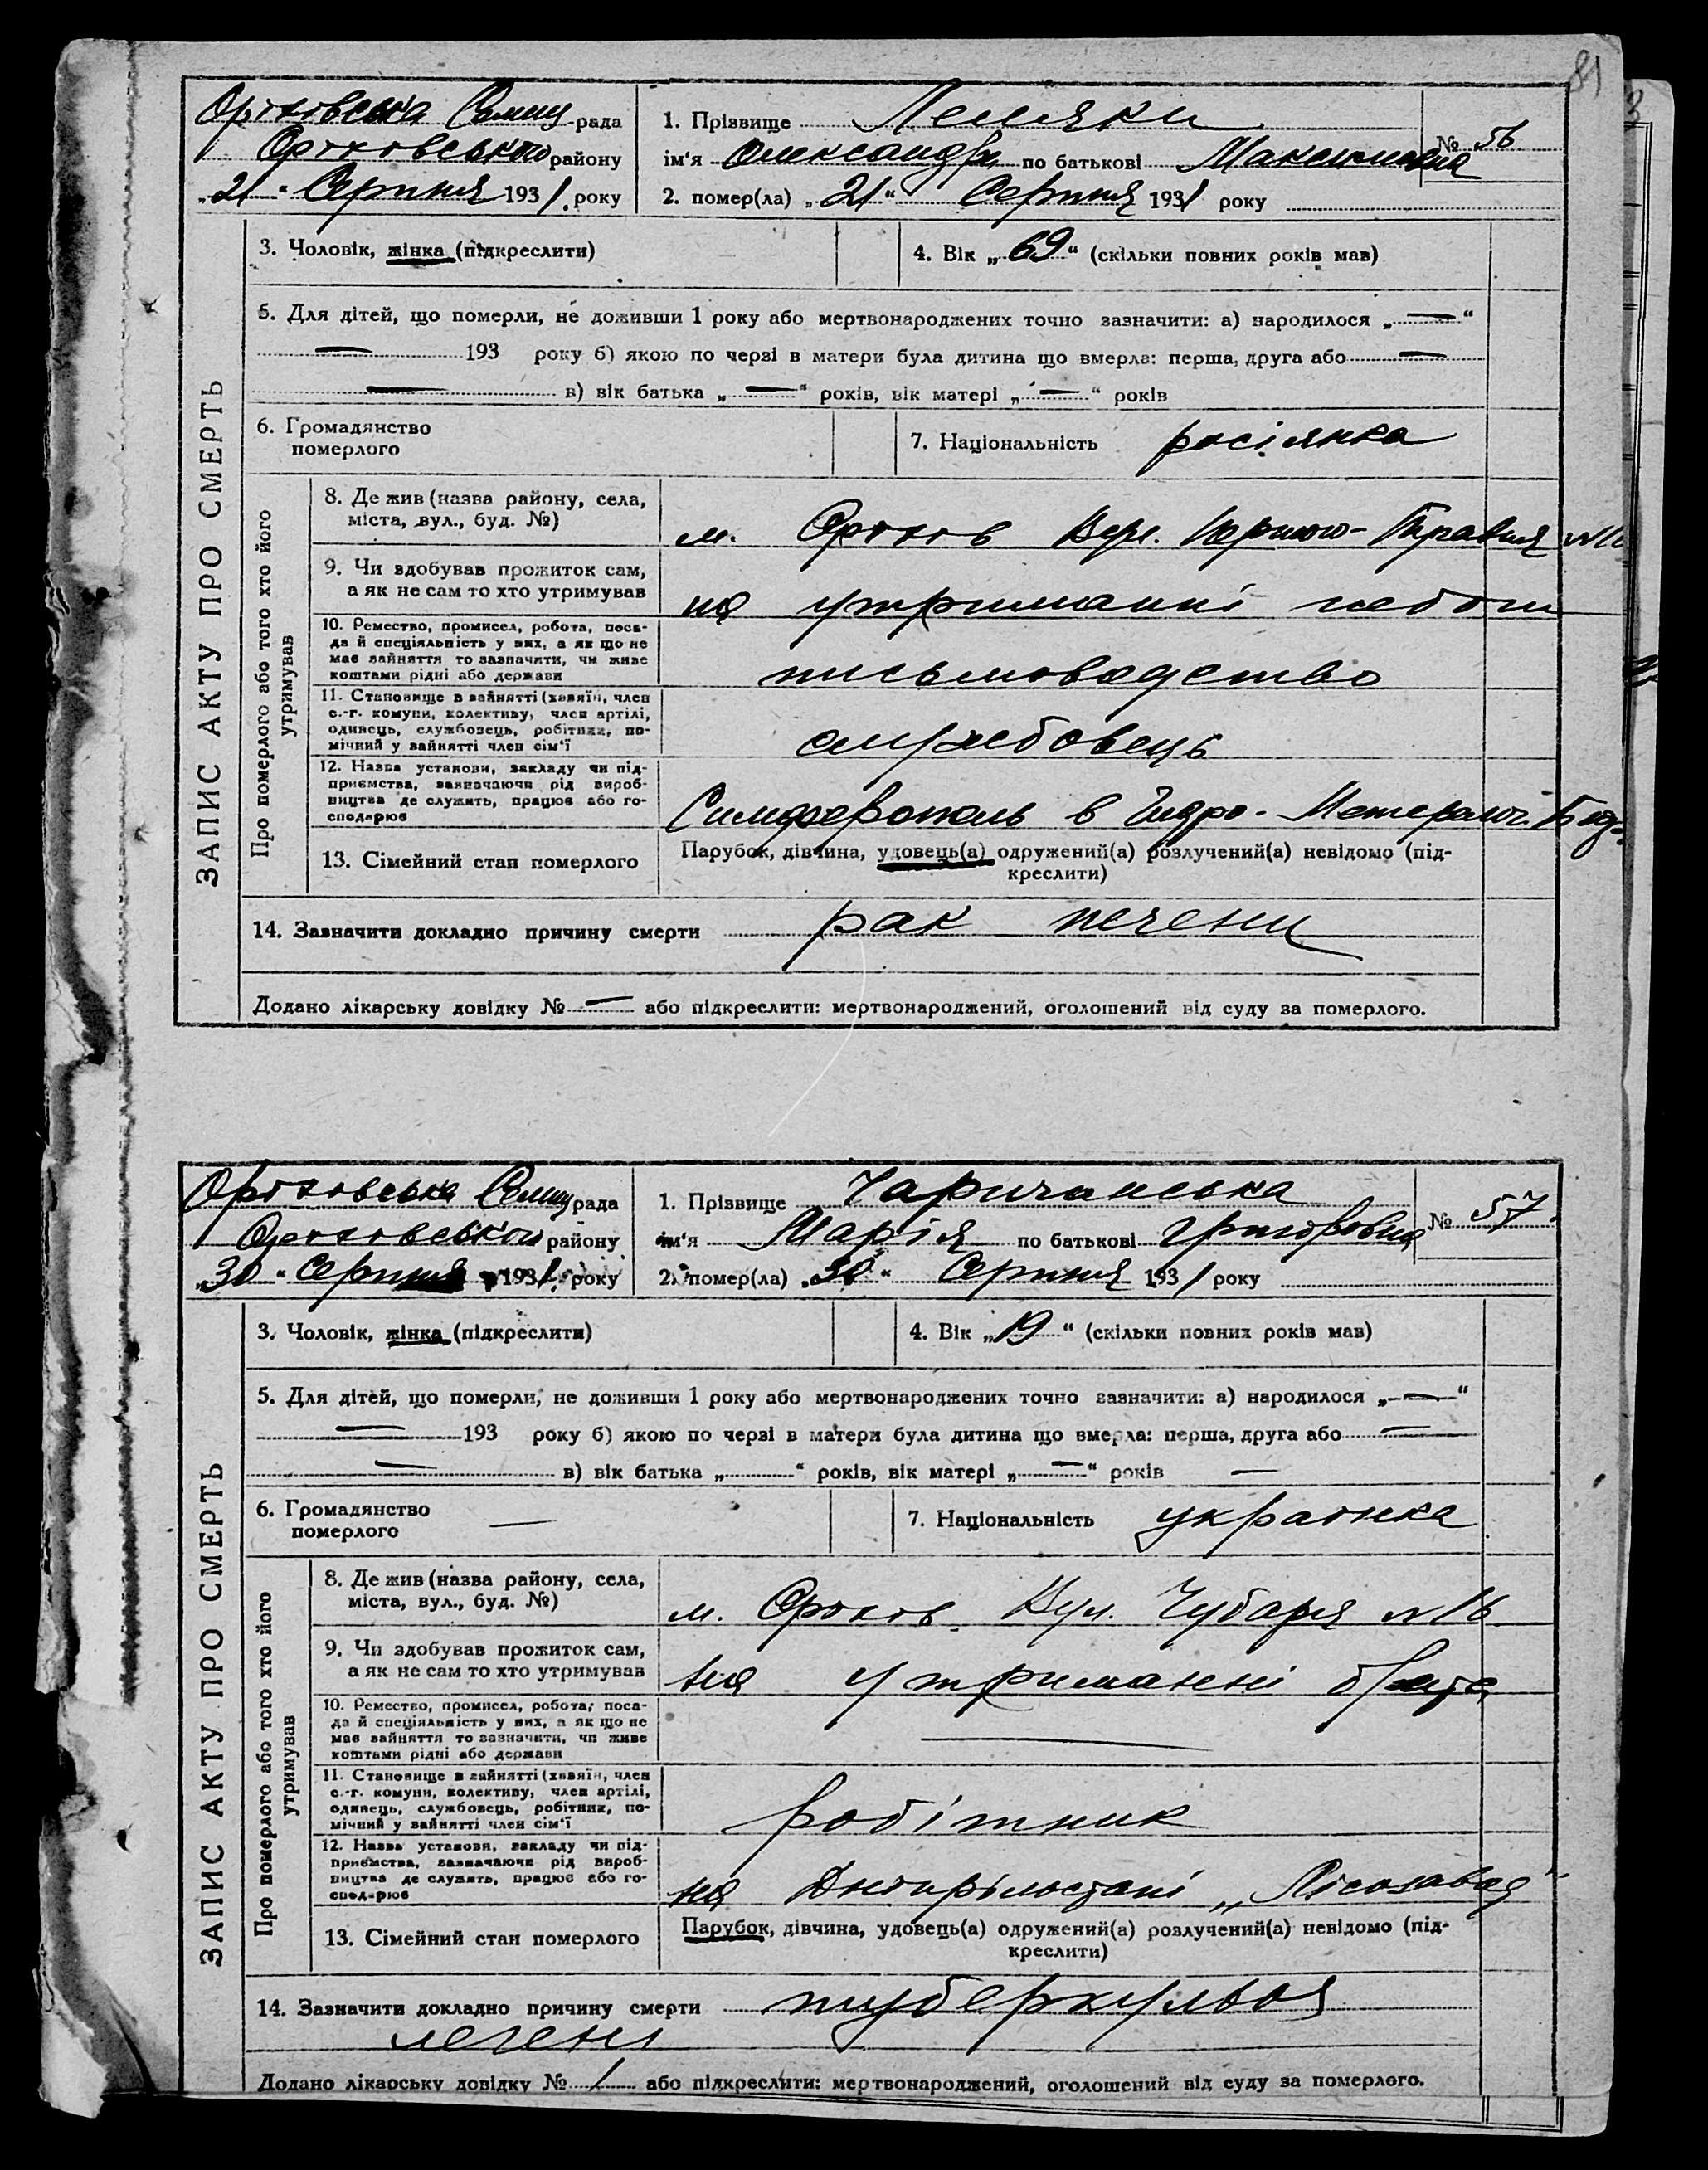 81
Оріховська Селищ рада
Оріховського району
„21“ Серпня 1931 року
1. Прізвище
№ 56
ім'я Олександра по батькові Максимовна
2. помер(ла) „21“ Серпня 1931 року
3. Чоловік, жінка (підкреслити)
4. Вік „69“ (скільки повних років мав)
5. Для дітей, що померли, не доживши 1 року або мертвонароджених точно зазначити: а) народилося „—“
— 193 року б) якою по черзі в матери була дитина що вмерла: перша, друга або —
— в) вік батька „—“ років, вік матері „—“ років
6. Громадянство
померлого
7. Національність росіянка
ЗАПИС АКТУ ПРО СМЕРТЬ
Про померлого або того хто його
утримував
8. Де жив (назва району, села,
міста, вул., буд. №)
м. Оріхов Вул. Першого-Травня №
9. Чи здобував прожиток сам,
а як не сам то хто утримував
на утриманні
10. Ремество, промисел, робота, поса-
да й спеціяльність у них, а як що не
має зайняття то зазначити, чи живе
коштами рідні або держави
письмоводство
11. Становище в зайнятті (хазяїн, член
с.-г. комуни, колективу, член артілі,
одинець, службовець, робітник, по-
мічний у зайнятті член сім'ї
службовець
12. Назва установи, закладу чи під-
приємства, зазначаючи рід вироб-
ництва де служить, працює або го-
сподарює
Симферополь в Гидро-
13. Сімейний стан померлого
Парубок, дівчина, удовець(а) одружений(а) розлучений(а) невідомо (під-
креслити)
14. Зазначити докладно причину смерти рак печени
Додано лікарську довідку № — або підкреслити: мертвонароджений, оголошений від суду за померлого.
Оріховська Селищ рада
Оріховського району
„30“ Серпня 1931 року
1. Прізвище Чаричанська
№ 57
ім'я Марія по батькові Григоровна
2. помер(ла) „30“ Серпня 1931 року
3. Чоловік, жінка (підкреслити)
4. Вік „19“ (скільки повних років мав)
5. Для дітей, що померли, не доживши 1 року або мертвонароджених точно зазначити: а) народилося „—“
— 193 року б) якою по черзі в матери була дитина що вмерла: перша, друга або —
— в) вік батька „ “ років, вік матері „—“ років —
6. Громадянство
померлого —
7. Національність українка
ЗАПИС АКТУ ПРО СМЕРТЬ
Про померлого або того хто його
утримував
8. Де жив (назва району, села,
міста, вул., буд. №)
м. Оріхов Вул. Чубаря №16
9. Чи здобував прожиток сам,
а як не сам то хто утримував
на утриманні брата
10. Ремество, промисел, робота, поса-
да й спеціяльність у них, а як що не
має зайняття то зазначити, чи живе
коштами рідні або держави
—
11. Становище в зайнятті (хазяїн, член
с.-г. комуни, колективу, член артілі,
одинець, службовець, робітник, по-
мічний у зайнятті член сім'ї
робітник
12. Назва установи, закладу чи під-
приємства, зазначаючи рід вироб-
ництва де служить, працює або го-
сподарює
на „Лісозавод“
13. Сімейний стан померлого
Парубок, дівчина, удовець(а) одружений(а) розлучений(а) невідомо (під-
креслити)
14. Зазначити докладно причину смерти туберкульоз
легені
Додано лікарську довідку № / або підкреслити: мертвонароджений, оголошений від суду за померлого.